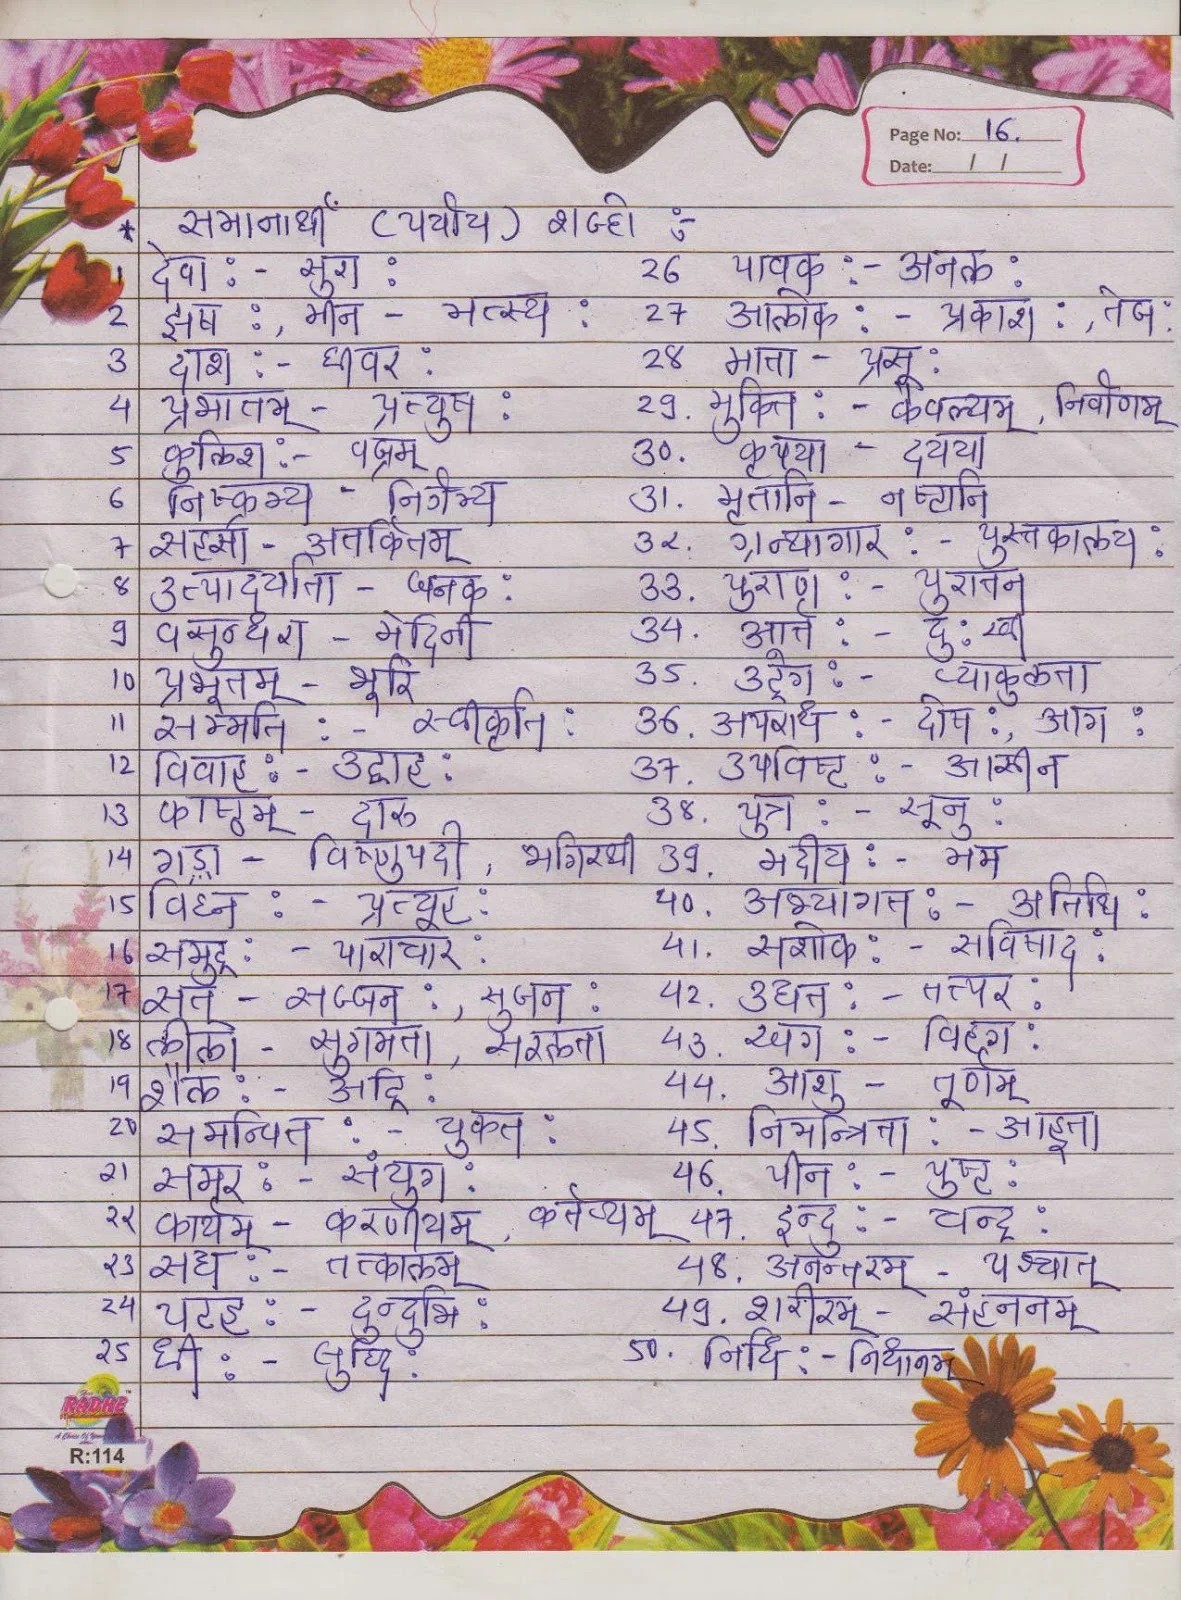 Page No: 16.
Date: / /
* समानार्थी (पर्याय) शब्दो :-
1 देवा :- सुरा :
2 झष :, मीन - मत्स्य :
3 दाश :- धीवर :
4 प्रभातम् - प्रत्युष :
5 कुलिश :- वज्रम्
6 निष्क्रम्य - निर्गम्य
7 सहसा - अतर्कितम्
8 उत्पादयिता - जनक :
9 वसुन्धरा - मेदिनी
10 प्रभूतम् - भूरि
11 सम्मति :- स्वीकृति :
12 विवाह :- उद्वाह :
13 काष्ठम् - दारु
14 गङ्गा - विष्णुपदी , भगिरथी
15 विघ्न :- प्रत्यूह :
16 समुद्र :- पारावार :
17 सत् - सज्जन :, सुजन :
18 लीला - सुगमता , सरलता
19 शैल :- अद्रि :
20 समन्वित :- युकत :
21 समर :- संयुग :
२२ कार्यम् - करणीयम् , कर्तव्यम्
२3 सद्य :- तत्कालम्
२4 पटह :- दुन्दुभि :
२5 धी :- बुद्धि :
26 पावक :- अनल :
27 आलोक :- प्रकाश :, तेज :
28 माता - प्रसू :
29. मुकित :- कैवल्यम् , निर्वाणम्
30. कृपया - दयया
31. मृतानि - नष्टानि
3२. ग्रन्थागार :- पुस्तकालय :
33. पुराण :- पुरातन
34. आर्त्त :- दु:खी
35. उद्वेग :- व्याकुलता
36. अपराध :- दोष :, आग :
37. उपविष्ट :- आसीन
38. पुत्र :- सूनु :
39. मदीय :- मम
40. अभ्यागत :- अतिथि :
41. सशोक :- सविषाद :
42. उद्यत :- तत्पर :
43. खग :- विहग :
44. आशु - तूर्णम्
45. निमन्त्रिता :- आहूता
46. पीन :- पुष्ट :
47. इन्दु :- चन्द्र :
48. अनन्तरम् - पश्चात्
49. शरीरम् - संहननम्
50. निधि :- निधानम्
RADHE
R:114